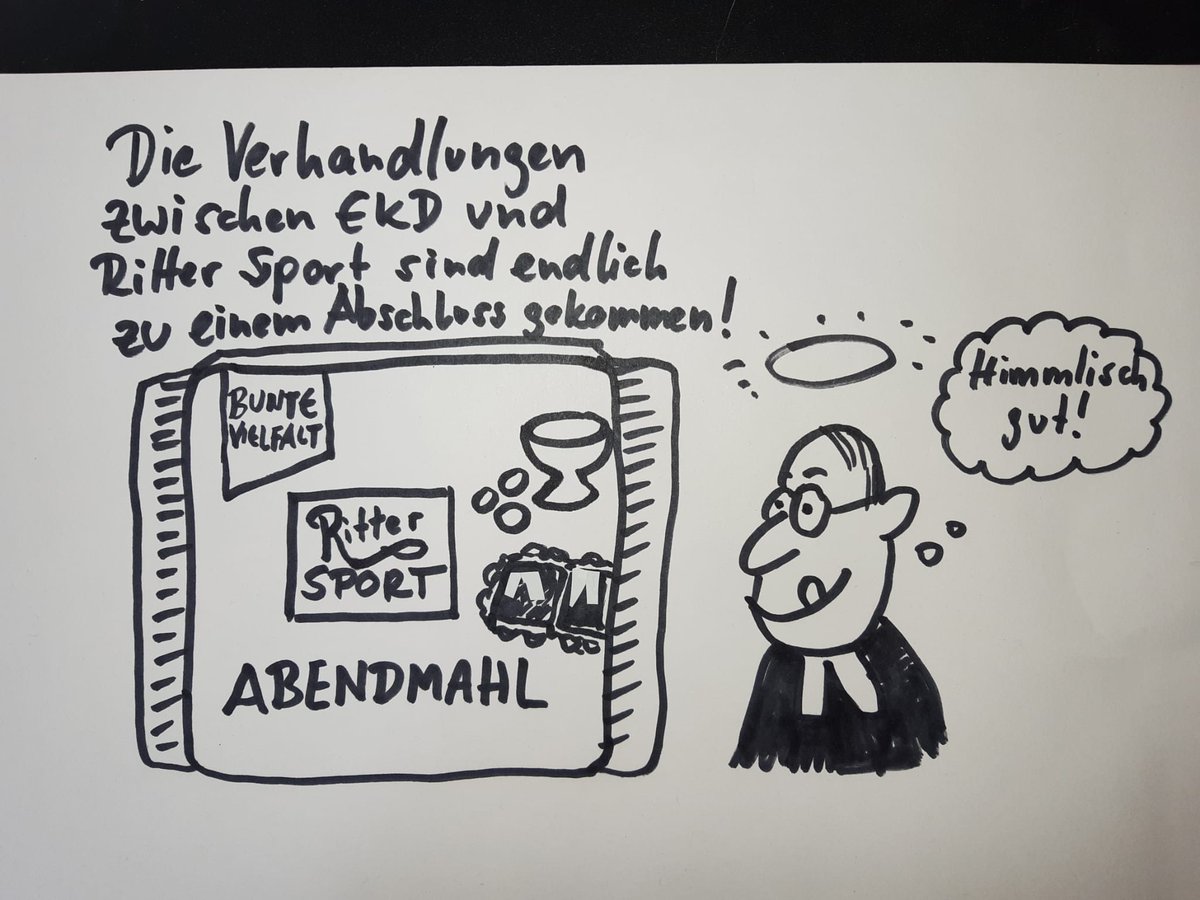 Die Verhandlungen
zwischen EKD und
Ritter Sport sind endlich
zu einem Abschluss gekommen!
BUNTE
VIELFALT
Ritter
SPORT
ABENDMAHL
Himmlisch
gut!